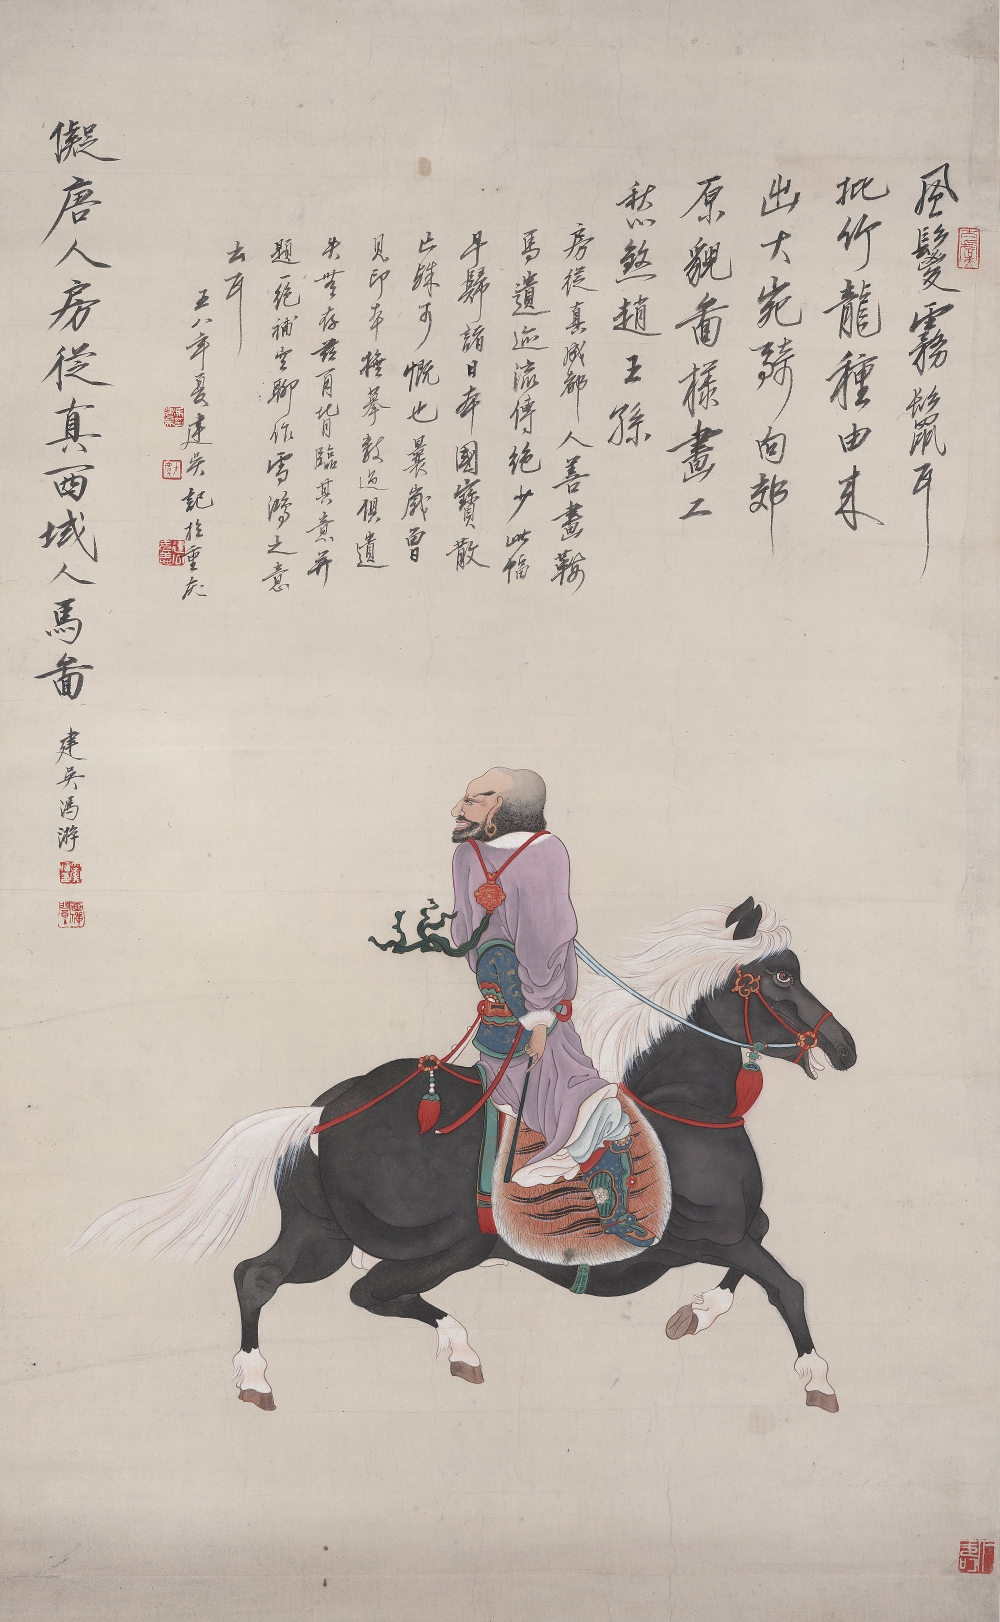 風鬉霧鬣耳
批竹龍種由来
出大宛騎向郊
原貌啚樣畫工
愁煞趙王孫
房從真成都人善畫鞍
馬遺迹流傳絕少此幅
早歸諸日本國寶散
亡殊可慨也曩歲曾
見印本撫摹數過俱遺
失無存茲再背臨其意并
題一絕補空聊作雪鴻之意
云耳
五八年夏建吳記於重慶
儗唐人房從真西域人馬啚 建吳馮游